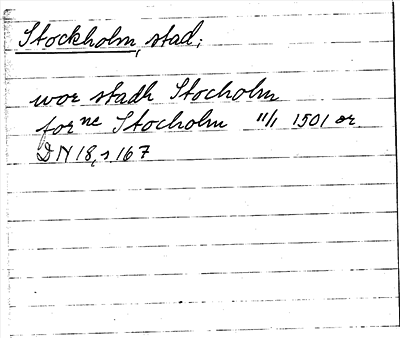 Stockholm, stad;
wor stadh Stocholm
forne Stocholm 11/1 1501 or.
DN 18, s 167